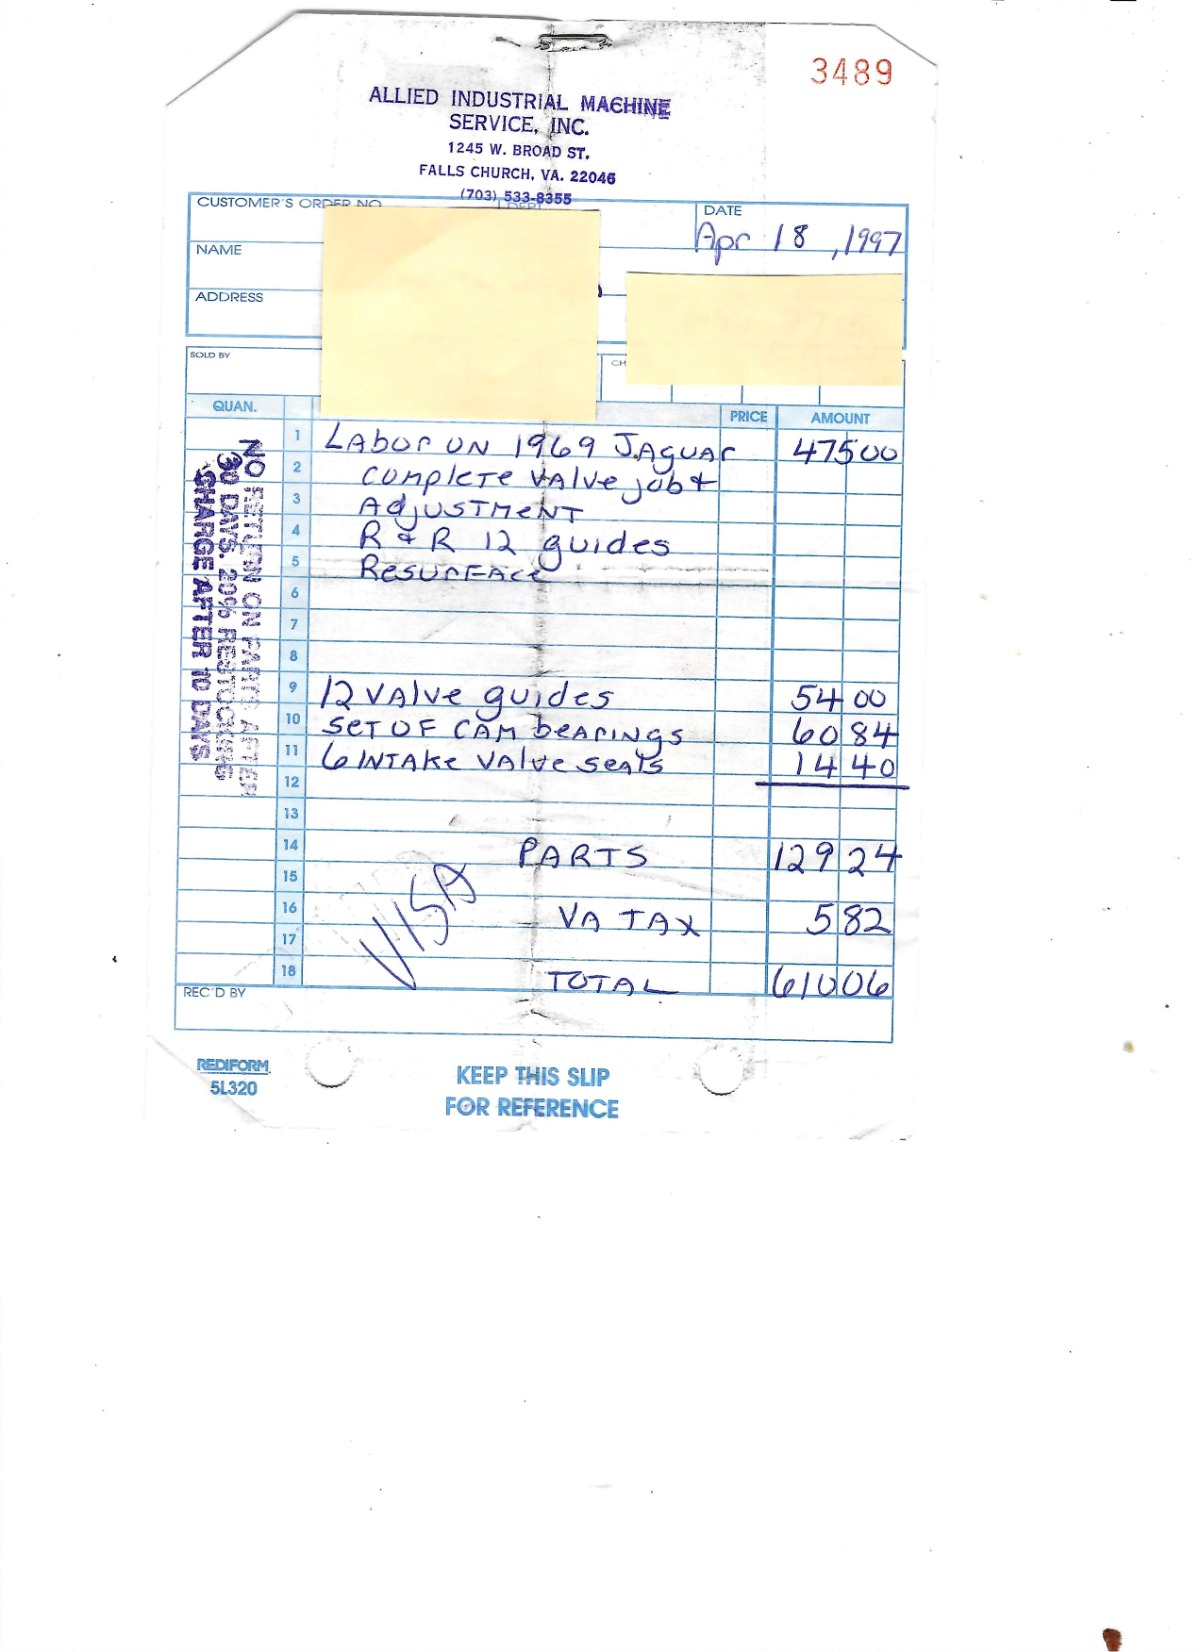 3489
ALLIED INDUSTRIAL MACHINE
SERVICE, INC.
1245 W. BROAD ST.
FALLS CHURCH, VA. 22046
(703) 533-8355
CUSTOMER'S ORDER NO.
DEPT.
DATE
Apr 18, 1997
NAME
ADDRESS
SOLD BY
CH
QUAN.
PRICE
AMOUNT
1 Labor on 1969 Jaguar 475 00
2 complete valve job &
3 Adjustment
4 R & R 12 guides
5 Resurface
6
7
8
9 12 valve guides 54 00
10 set of cam bearings 60 84
11 6 intake valve seats 14 40
12
13
14 PARTS 129 24
15
16 VA TAX 5 82
17
18 TOTAL 610 06
VISA
REC'D BY
NO RETURN ON PARTS AFTER
30 DAYS. 20% RESTOCKING
CHARGE AFTER 10 DAYS
REDIFORM
5L320
KEEP THIS SLIP
FOR REFERENCE